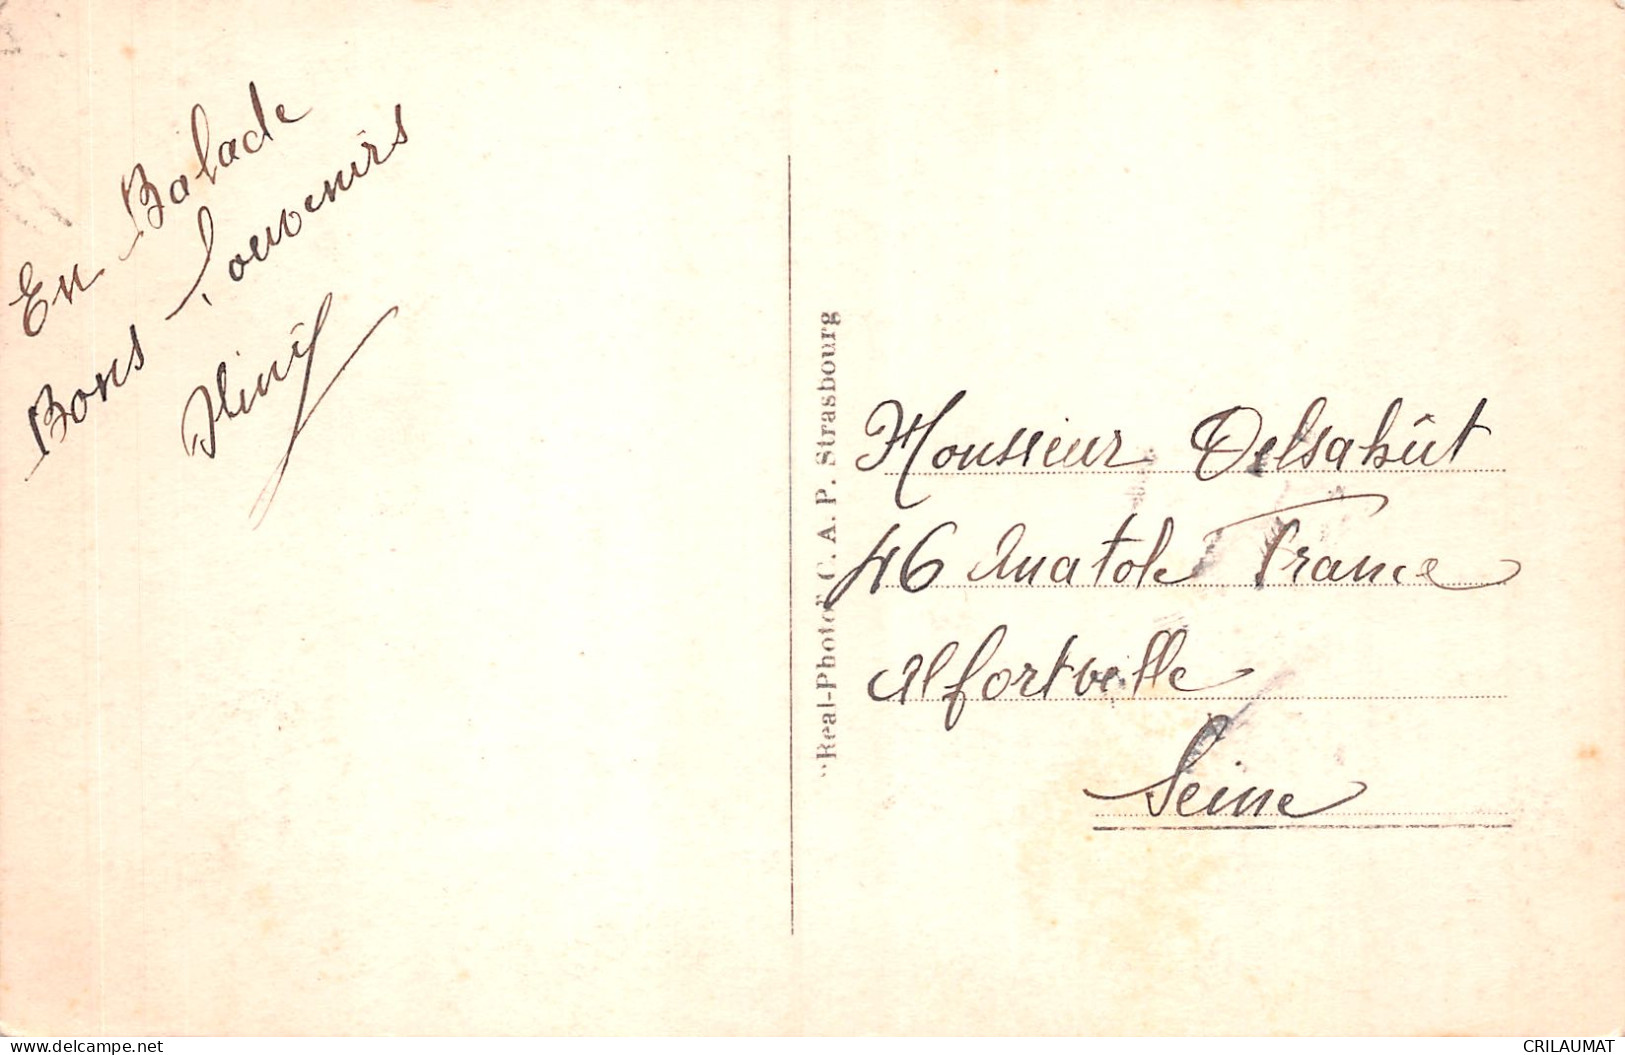 En Balade
Bons Souvenirs
"Real-Photo" C. A. P. Strasbourg
Monsieur Delsahût
46 Anatole France
Alfortville
Seine
www.delcampe.net
CRILAUMAT